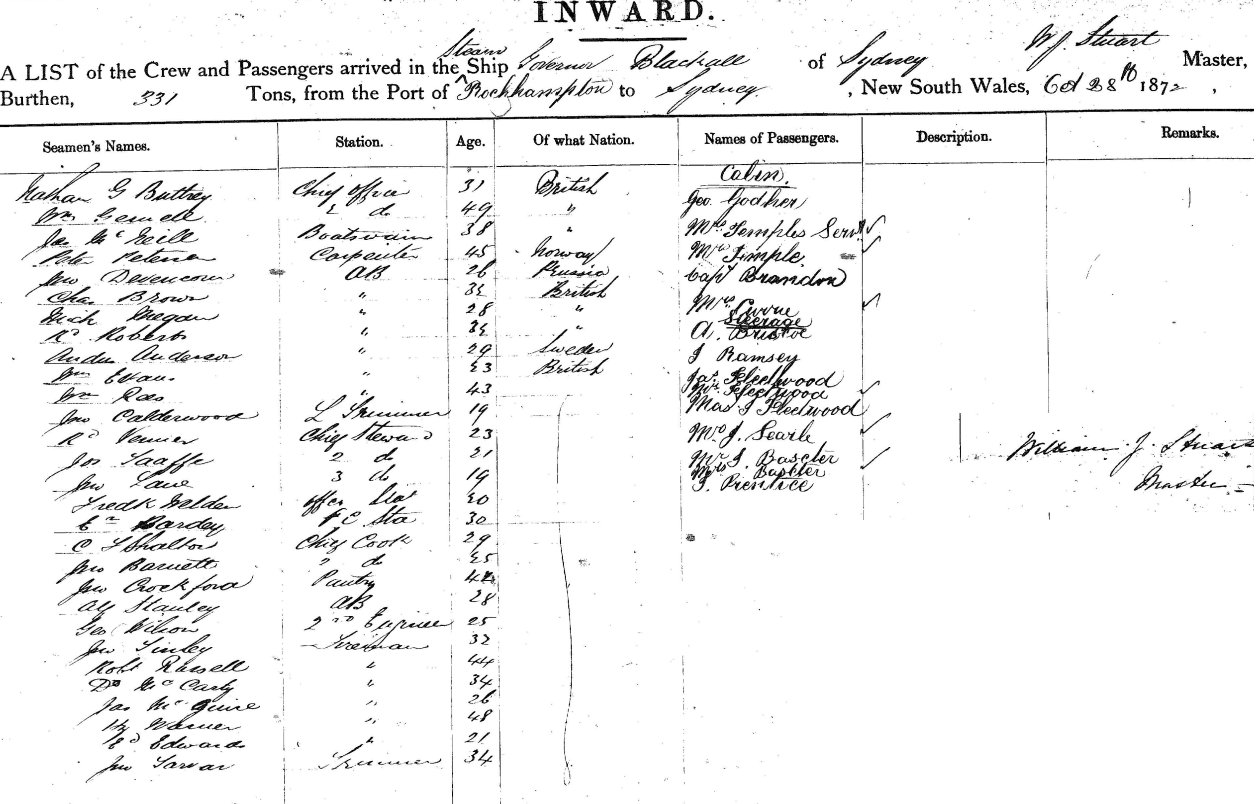 INWARD.
A LIST of the Crew and Passengers arrived in the Steam Ship Governor Blackall of Sydney W J Stuart Master,
Burthen, 331 Tons, from the Port of Rockhampton to Sydney, New South Wales, Oct 28th 1872,
Seamen's Names. Station. Age. Of what Nation. Names of Passengers. Description. Remarks.
Cabin.
Nathan G Buttrey Chief office 31 British Geo. Godher
Wm Gemell 2 do 49 "
Jas McNeill Boatswain 38 " Mrs Temples Servt
Peter Petersen Carpenter 45 Norway Mrs Temple
Jno AB 26 Prussia Capt Brandon
Chas Brown " British Mrs
Mich " 28 " Steerage
Rd Roberts " " A. Bristoe
Andw Anderson " 29 Sweden J Ramsey
Wm Evans " 23 British Jas Fleetwood
Wm " 43 Mrs Fleetwood
Mas J Fleetwood
Jno Calderwood L Trimmer 19
Rd Venner Chief Steward 23 J. Searle
Jos 2 do 21 Mr J. Baxter
Mrs Baxter
Jno Lane 3 do 19 J. Prentice
William J Stuart
Master
Fredk Welden Sta 20
Bardey F C Sta 30
C Shalton Chief Cook 29
Jno Barnett 2 do 25
Jno Crockford Pantry 42
Alf Stanley AB 28
Geo Wilson 2nd Engineer 25
Jno Tinley Fireman 32
Robt Russell " 44
Mc Carty " 34
Jas McGuire " 26
Hy Warner " 48
Ed Edwards " 21
Jno Trimmer 34